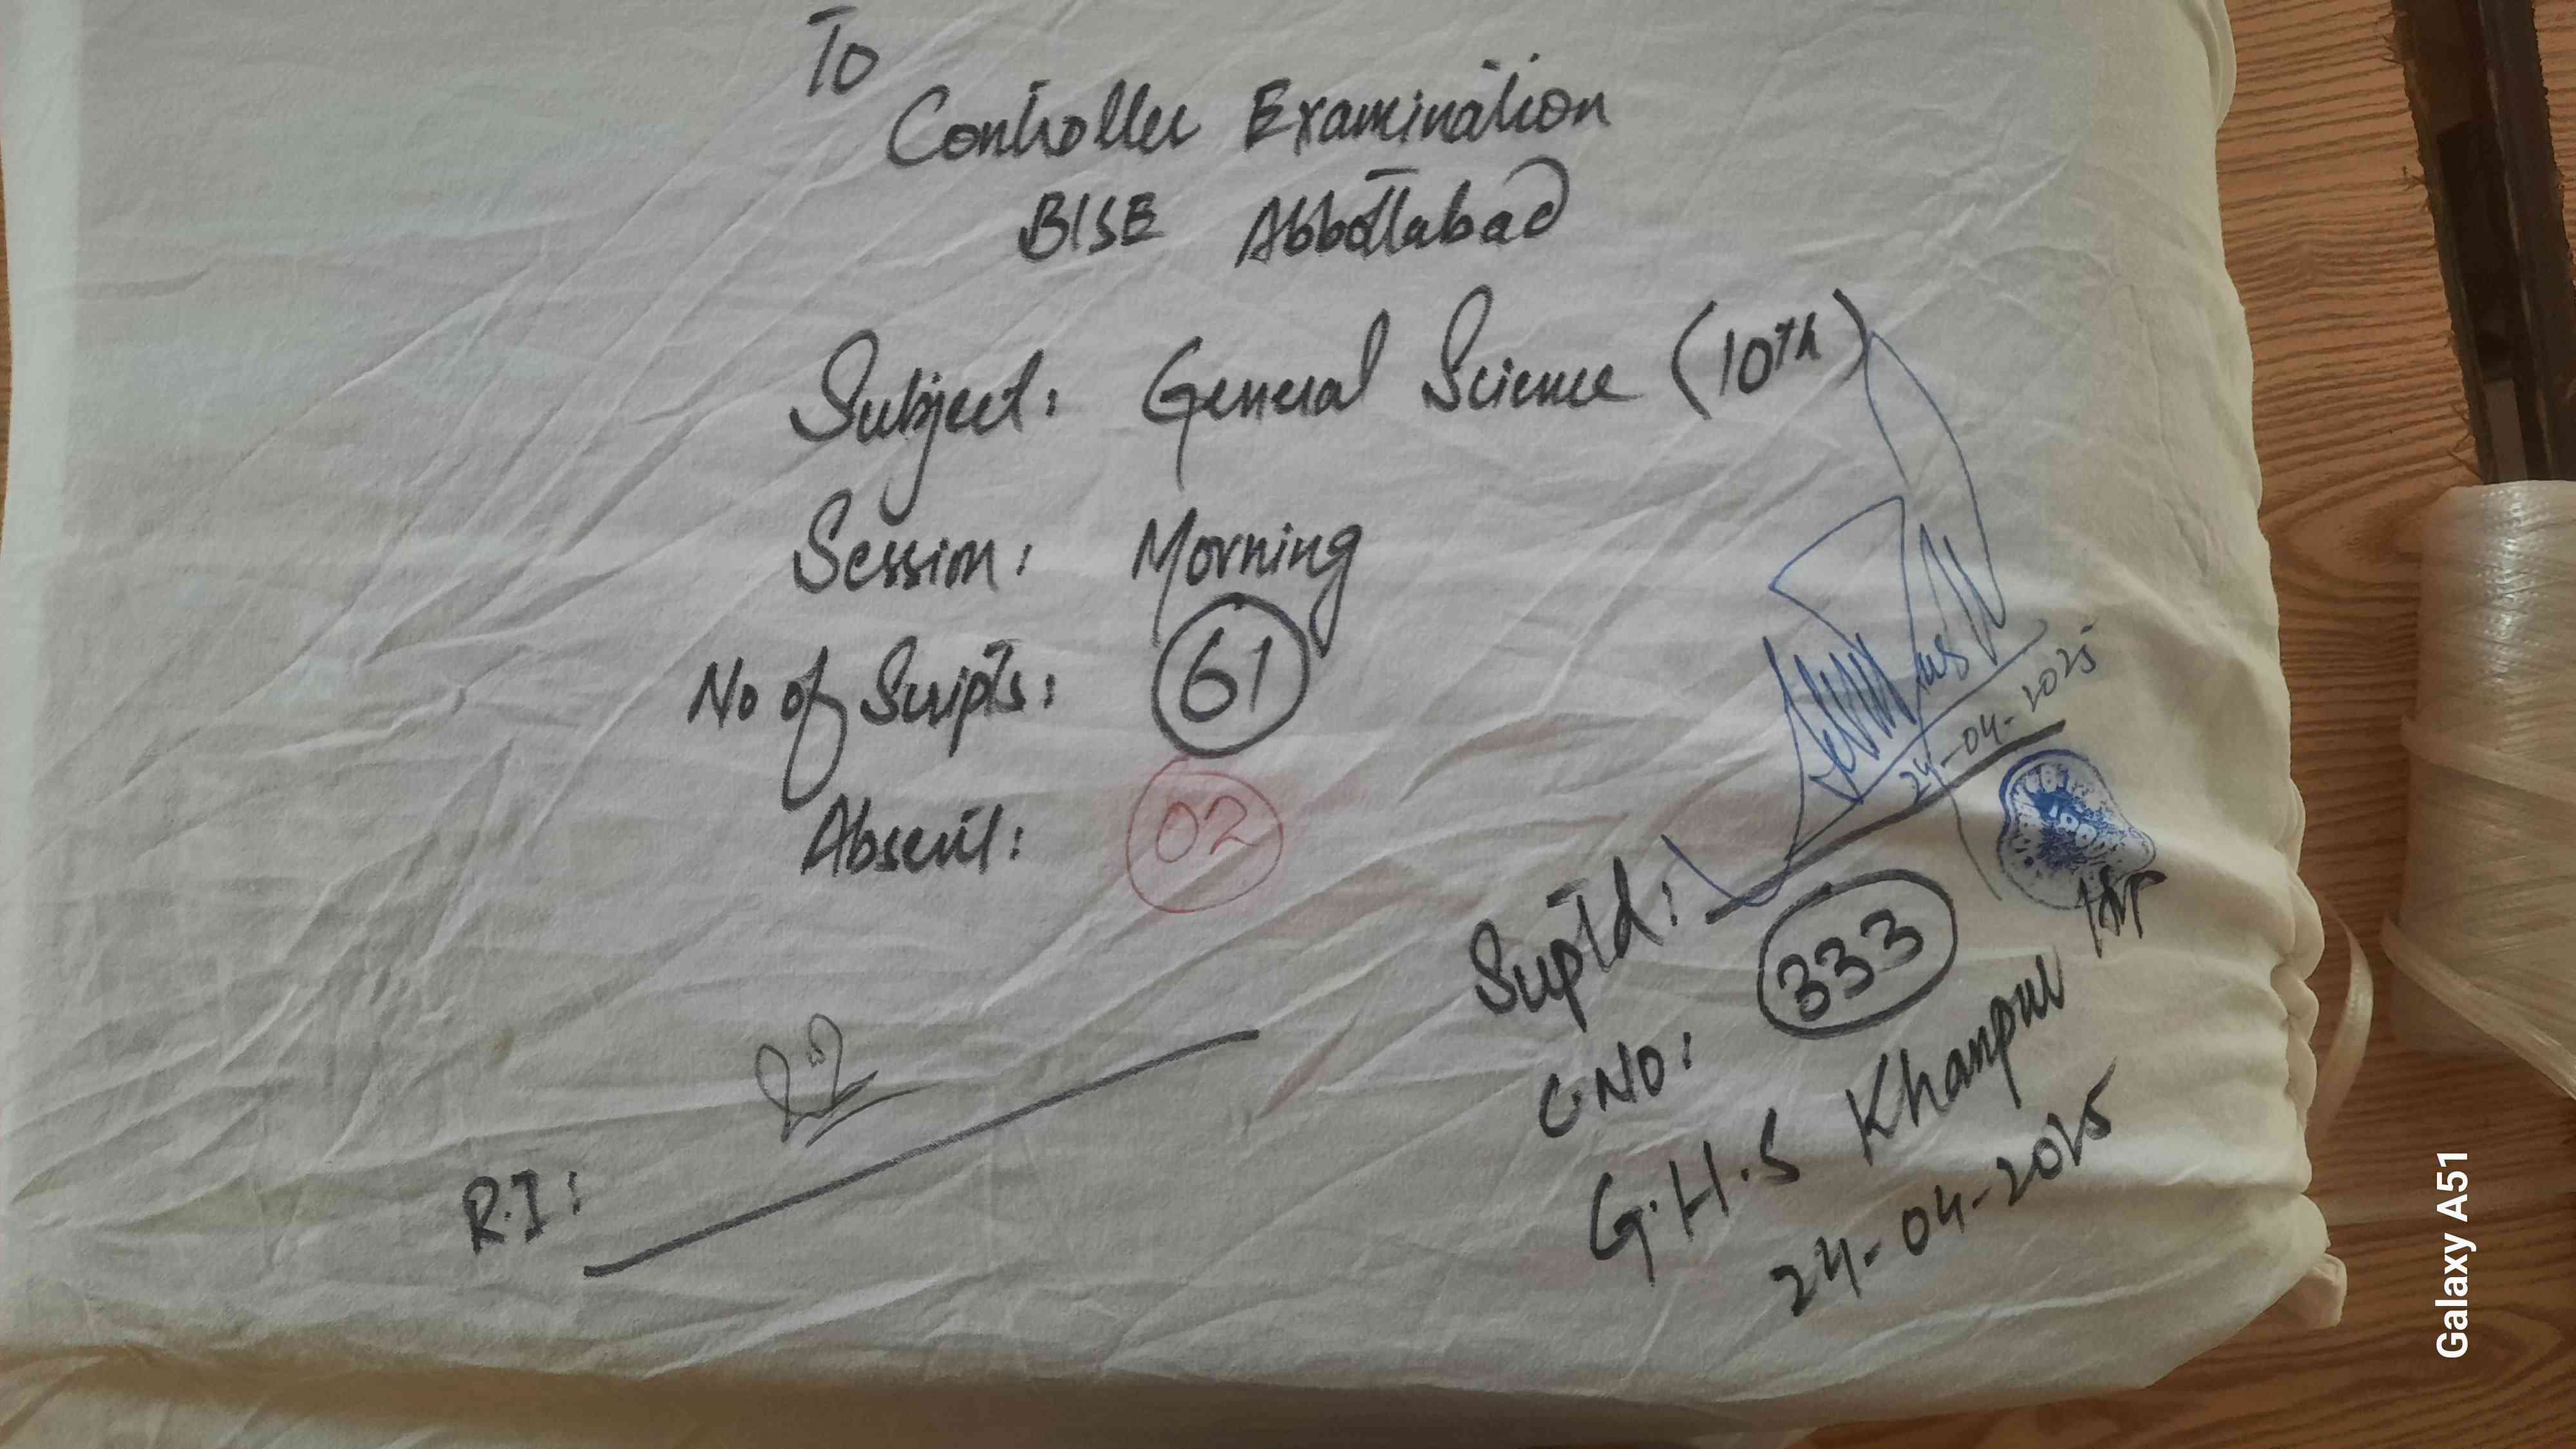 To
Controller Examination
BISE Abbottabad
Subject: General Science (10th)
Session: Morning
No of Scripts: 61
Absent: 02
24-04-2025
Suptd:
C.No: 333
G.H.S Khanpur
24-04-2025
R.I:
Galaxy A51